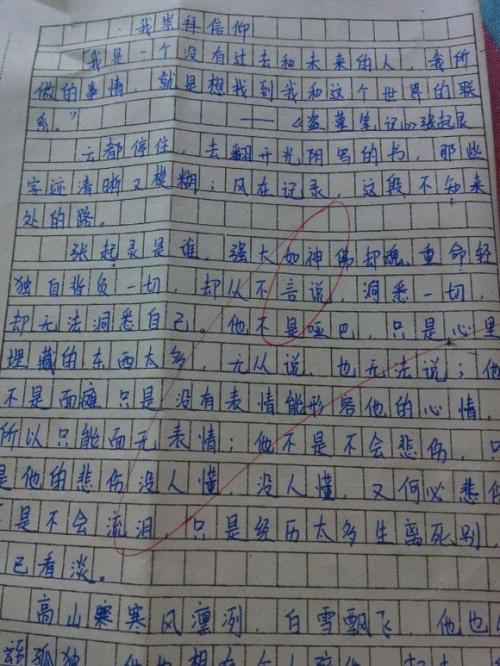 我崇拜信仰
“我是一个没有过去和未来的人,我所
做的事情,就是想找到我和这个世界的联
系。”
——《盗墓笔记》张起灵
云都停住,去翻开光阴写的书,那些
字迹清晰又模糊;风在记录,这段不知来
处的路。
张起灵是谁,强大如神佛却魂重命轻
独自背负一切,却从不言说,洞悉一切,
却无法洞悉自己。他不是哑巴,只是心里
埋藏的东西太多,无从说,也无法说;他
不是面瘫只是没有表情能形容他的心情,
所以只能面无表情;他不是不会悲伤,只
是他的悲伤没人懂,没人懂,又何必悲伤
是不会流泪,只是经历太多生离死别,
已看淡。
高山寒寒风凛冽,白雪飘飞,他也
孤独